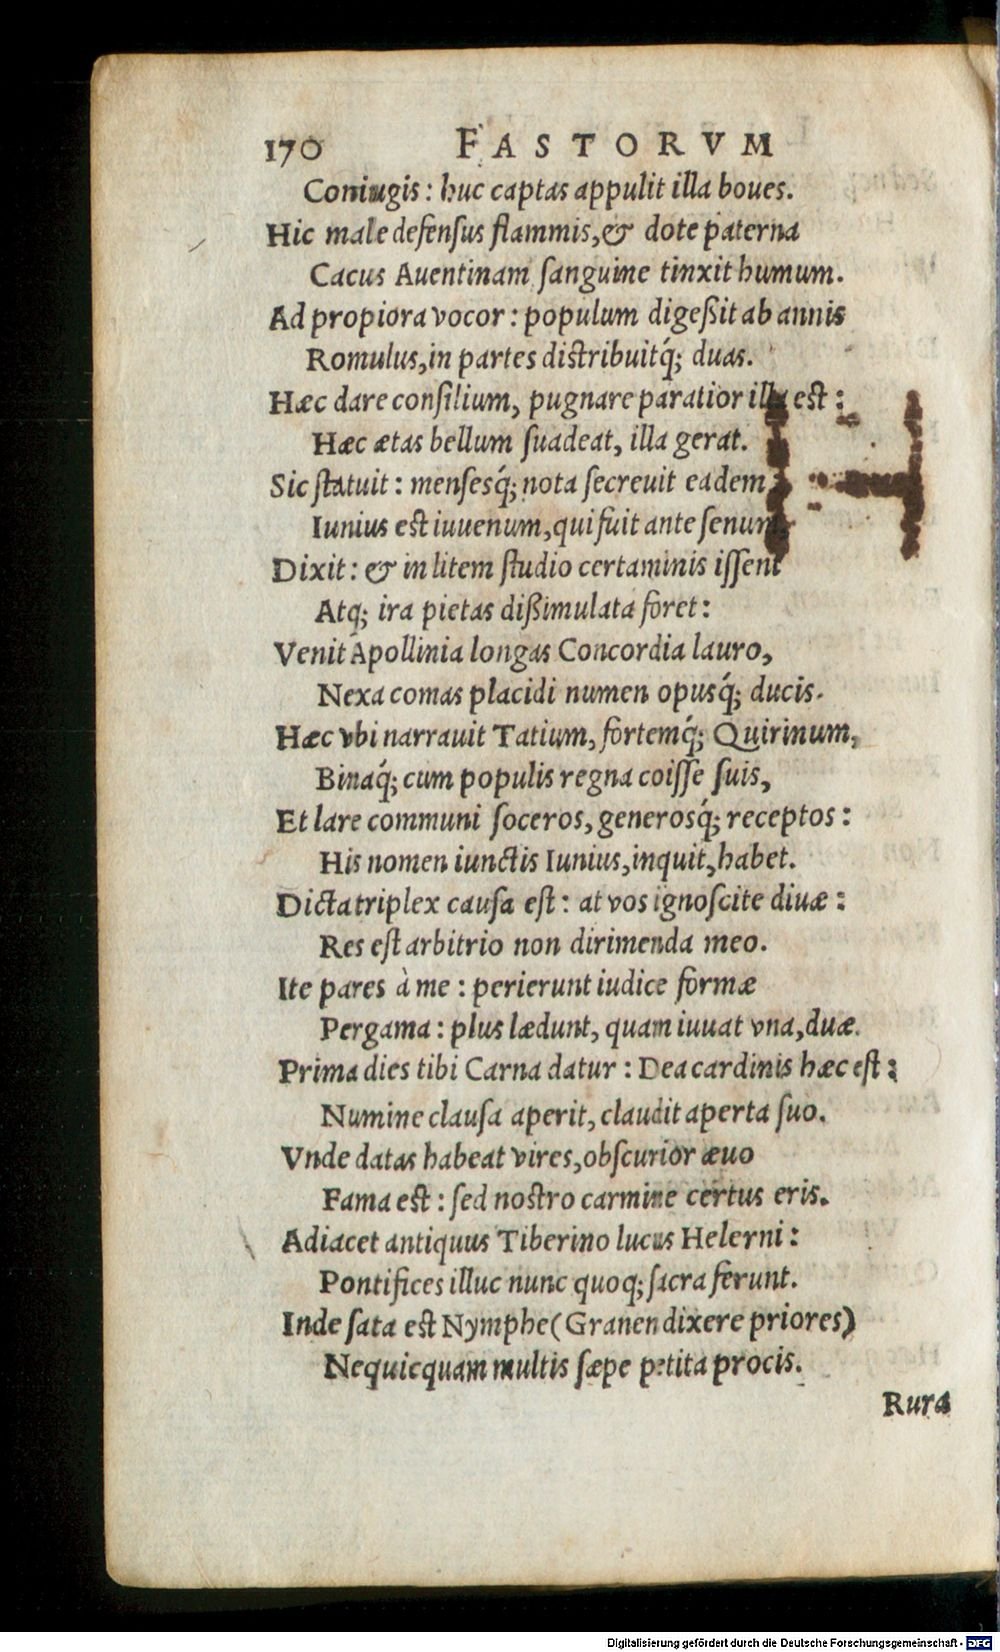 170 FASTORVM
Coniugis: huc captas appulit illa boues.
Hic male defenſus flammis, & dote paterna
Cacus Auentinam ſanguine tinxit humum.
Ad propiora vocor: populum digeßit ab annis
Romulus, in partes distribuitq́; duas.
Hæc dare conſilium, pugnare paratior illa est:
Hæc ætas bellum ſuadeat, illa gerat.
Sic ſtatuit: menſesq́; nota ſecreuit eadem
Iunius est iuuenum, qui fuit ante ſenum.
Dixit: & in litem ſtudio certaminis iſſent
Atq; ira pietas dißimulata foret:
Venit Apollinia longas Concordia lauro,
Nexa comas placidi numen opusq́; ducis.
Hæc vbi narrauit Tatium, fortemq́; Quirinum,
Binaq́; cum populis regna coiſſe ſuis,
Et lare communi ſoceros, generosq́; receptos:
His nomen iunctis Iunius, inquit, habet.
Dicta triplex cauſa est: at vos ignoſcite diuæ:
Res eſt arbitrio non dirimenda meo.
Ite pares à me: perierunt iudice formæ
Pergama: plus lædunt, quam iuuat vna, duæ.
Prima dies tibi Carna datur: Dea cardinis hæc eſt:
Numine clauſa aperit, claudit aperta ſuo.
Vnde datas habeat vires, obſcurior æuo
Fama est: ſed nostro carmine certus eris.
Adiacet antiquus Tiberino lucus Helerni:
Pontifices illuc nunc quoq; ſacra ferunt.
Inde ſata est Nymphe (Granen dixere priores)
Nequicquam multis ſæpe petita procis.
Rura
Digitalisierung gefördert durch die Deutsche Forschungsgemeinschaft - DFG